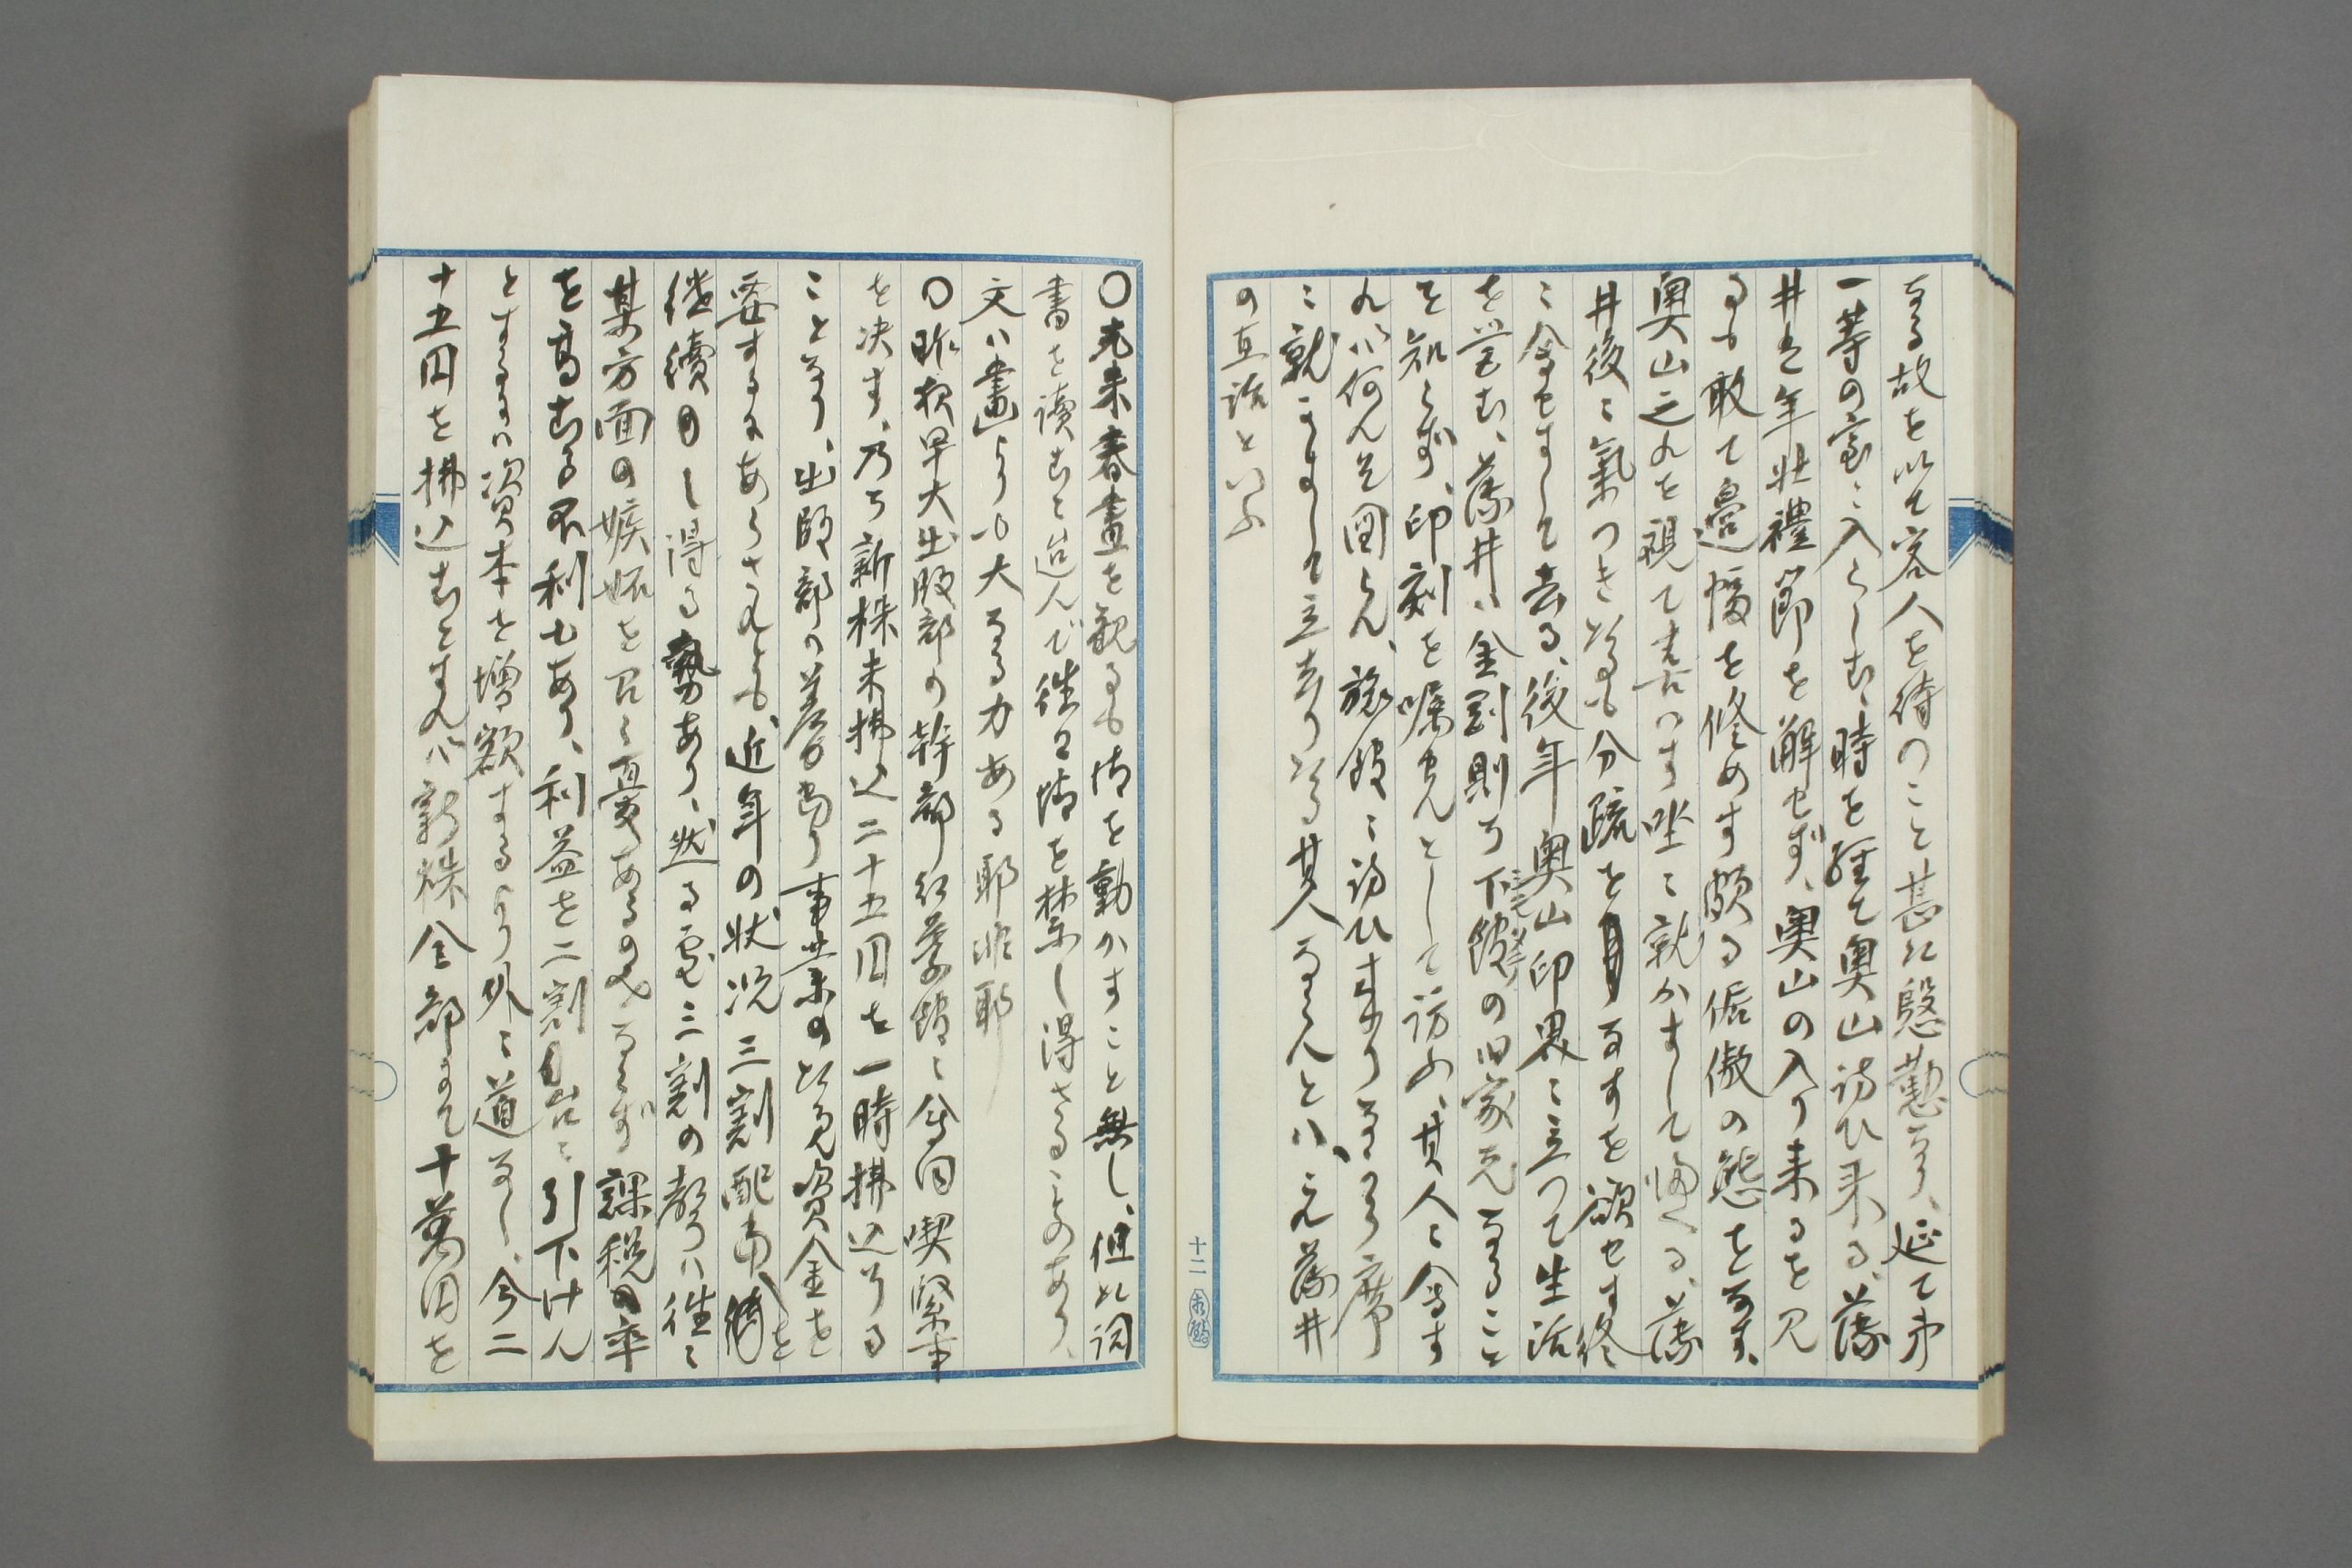 なる故を以て客人を待のこと甚た慇懃なり、延て第
一等の室ニ入らしむ、時を経て奥山訪ひ来る、藤
井老年壮禮節を解せず、奥山の入り来るを見
るも敢て邊幅を修めす頗る倨傲の態をなす、
奥山之れを視て喜はす坐ニ就かすして帰へる、藤
井後ニ氣つきいるも分疏をなすを欲せす終
ニ会せすして去る、後年奥山印界ニ立つて生活
を営む、藤井ハ金剛則ち下館の旧家元なること
を知らず、印刻を嘱せんとして訪ふ、其人ニ会す
れハ何んそ図らん、旅館ニ訪ひ来りなから席
ニ就かすして立去りいる其人ならんとハ、之元藤井
の直話といふ
十二
〇元来書畫を観るも情を動かすこと無し、但た詞
書を讀むに迨んで往々情を禁し得さることあり、
文ハ畫よりも大なる力ある耶非耶
〇昨夜早大出版部の幹部紅葉館ニ会同喫緊事
を決す、乃ち新株未拂込二十五円を一時拂込しむる
ことなり、出版部の差当り事業の拡充資金を
要するにあらされとも、近年の状況三割配当を
継續し得る勢あり、然るに三割の声ハ往々
某方面の嫉妬を招く憂あるのみならず課税の率
を高むる不利もあり、利益を二割台ニ引下けん
とするにハ資本を増額するより外ニ道なし、今二
十五円を拂込むとすれハ新株全部にて十萬円を